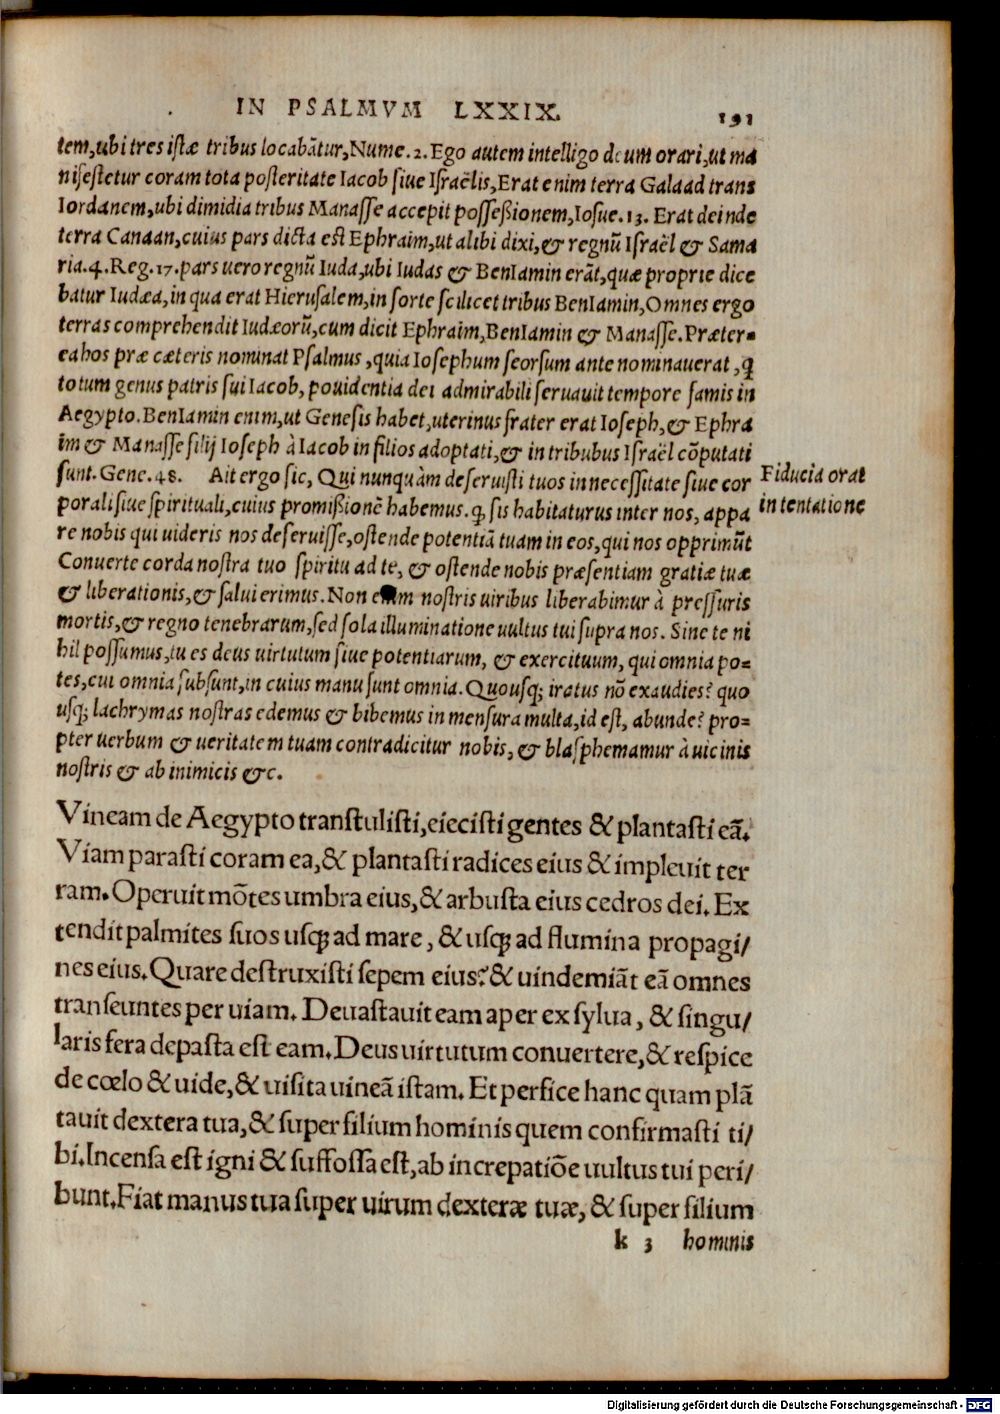 IN PSALMVM LXXIX. 191
tem,ubi tres istæ tribus locabãtur,Nume.2.Ego autem intelligo deum orari,ut ma
nifestetur coram tota posteritate Iacob siue Israëlis,Erat enim terra Galaad trans
Iordanem,ubi dimidia tribus Manasse accepit possessionem,Iosue.13.Erat deinde
terra Canaan,cuius pars dicta est Ephraim,ut alibi dixi,& regnũ Israël & Sama
ria.4.Reg.17.pars uero regnũ Iuda,ubi Iudas & BenIamin erãt,quæ proprie dice
batur Iudæa,in qua erat Hierusalem,in sorte scilicet tribus BenIamin,Omnes ergo
terras comprehendit Iudæorũ,cum dicit Ephraim,BenIamin & Manasse.Præter=
ea hos præ cæteris nominat Psalmus,quia Iosephum seorsum ante nominauerat,ꝙ
totum genus patris sui Iacob,pouidentia dei admirabili seruauit tempore famis in
Aegypto.BenIamin enim,ut Genesis habet,uterinus frater erat Ioseph,& Ephra
im & Manasse filij Ioseph à Iacob in filios adoptati,& in tribubus Israël cõputati
sunt.Gene.48. Ait ergo sic, Qui nunquàm deseruisti tuos in necessitate siue cor
porali siue spirituali,cuius promissionẽ habemus.ꝙ sis habitaturus inter nos, appa
re nobis qui uideris nos deseruisse,ostende potentiã tuam in eos,qui nos opprimũt
Conuerte corda nostra tuo spiritu ad te, & ostende nobis præsentiam gratiæ tuæ
& liberationis,& salui erimus.Non enim nostris uiribus liberabimur à pressuris
mortis,& regno tenebrarum,sed sola illuminatione uultus tui supra nos. Sine te ni
hil possumus,tu es deus uirtutum siue potentiarum, & exercituum, qui omnia po=
tes,cui omnia subsunt,in cuius manu sunt omnia.Quousqꝫ iratus nõ exaudies? quo
usqꝫ lachrymas nostras edemus & bibemus in mensura multa,id est, abunde? pro=
pter uerbum & ueritatem tuam contradicitur nobis, & blasphemamur à uicinis
nostris & ab inimicis &c.
Fiducia orat
in tentatione
Vineam de Aegypto transtulisti,eiecisti gentes & plantasti eã.
Viam parasti coram ea,& plantasti radices eius & impleuit ter
ram.Operuit mõtes umbra eius,& arbusta eius cedros dei.Ex
tendit palmites suos usqꝫ ad mare, & usqꝫ ad flumina propagi/
nes eius.Quare destruxisti sepem eius?& uindemiãt eã omnes
transeuntes per uiam.Deuastauit eam aper ex sylua, & singu/
laris fera depasta est eam.Deus uirtutum conuertere,& respice
de cœlo & uide,& uisita uineã istam.Et perfice hanc quam plã
tauit dextera tua,& super filium hominis quem confirmasti ti/
bi.Incensa est igni & suffossa est,ab increpatiõe uultus tui peri/
bunt.Fiat manus tua super uirum dexteræ tuæ, & super filium
k 3 hominis
Digitalisierung gefördert durch die Deutsche Forschungsgemeinschaft - DFG